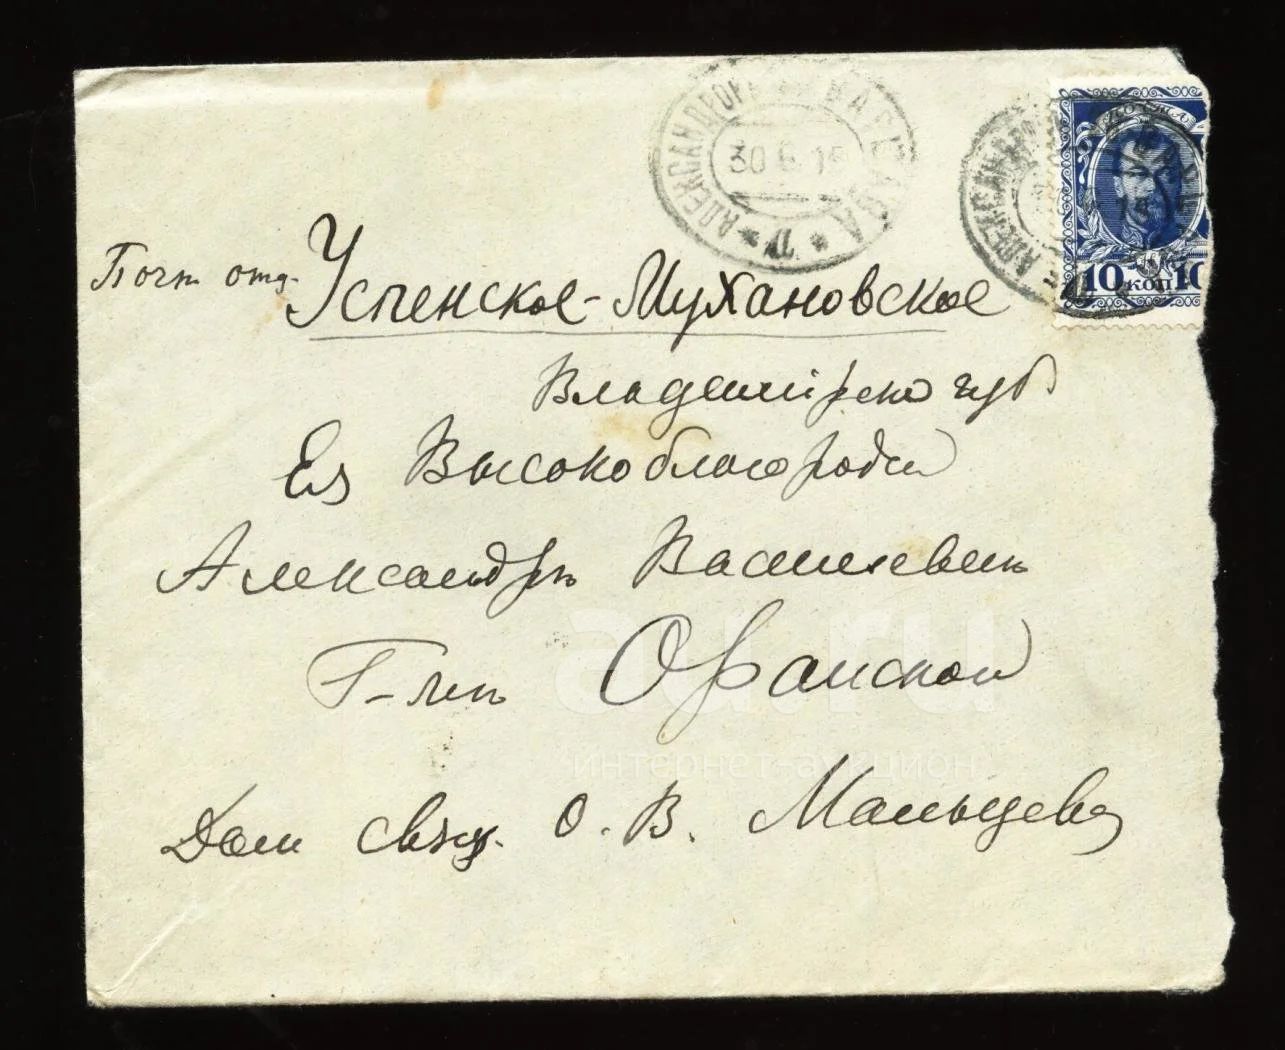 АЛЕКСАНДРОВ
30 6 15
10 КОП 10
Почт. отд. Успенское-Мухановское
Владимірско губ.
Ея Высокоблагородію
Александрѣ Васильевнѣ
Г-жѣ Оранской
Дом свящ. О. В. Мальцева
au.ru
интернет-аукцион